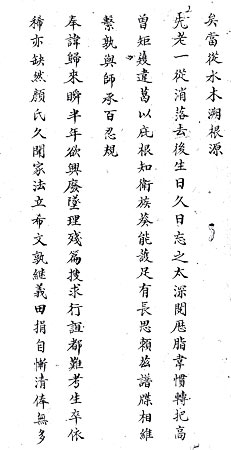 矣當從水木溯根源
先老一從消落去後生日久日忘之太深閱歷脂韋慣轉把高
曾矩矱違葛以庇根知衛族葵能護足有長思賴茲譜牒相維
繫孰與師承百忍規
奉諱歸來瞬半年欲興廢墜理殘篇搜求行誼都難考生卒依
稀亦缺然顏氏久聞家法立希文孰繼義田捐自慚清俸無多